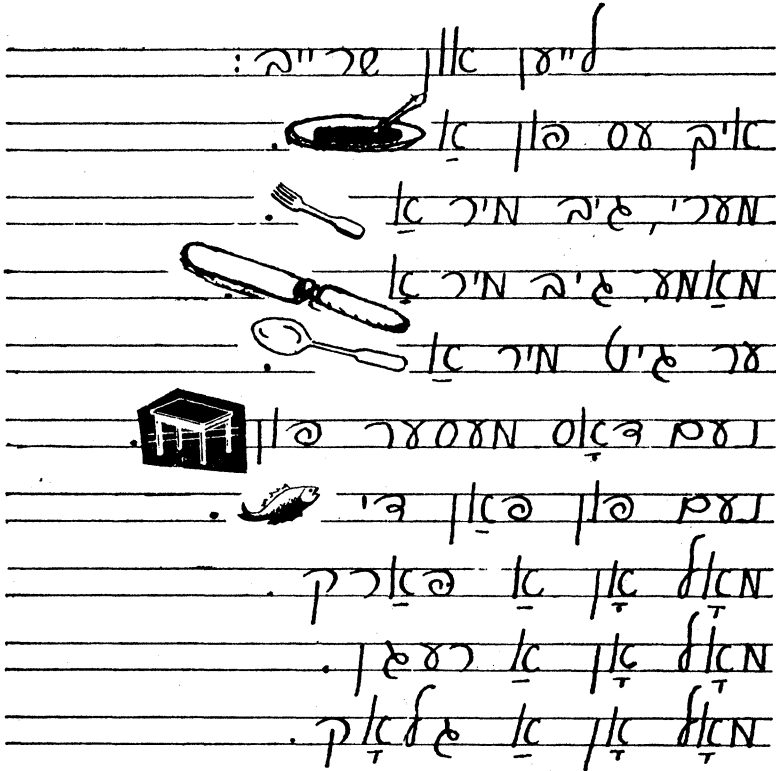 לייען און שרייב :
איך עס פון אַ .
מערי, גיב מיר אַ .
מאַמע, גיב מיר אַ .
ער גיט מיר אַ .
נעם דאָס מעסער פון .
נעם פון פאַן די .
מאָל אָן אַ פאַרק .
מאָל אָן אַ רעגן .
מאָל אָן אַ גלאָק .